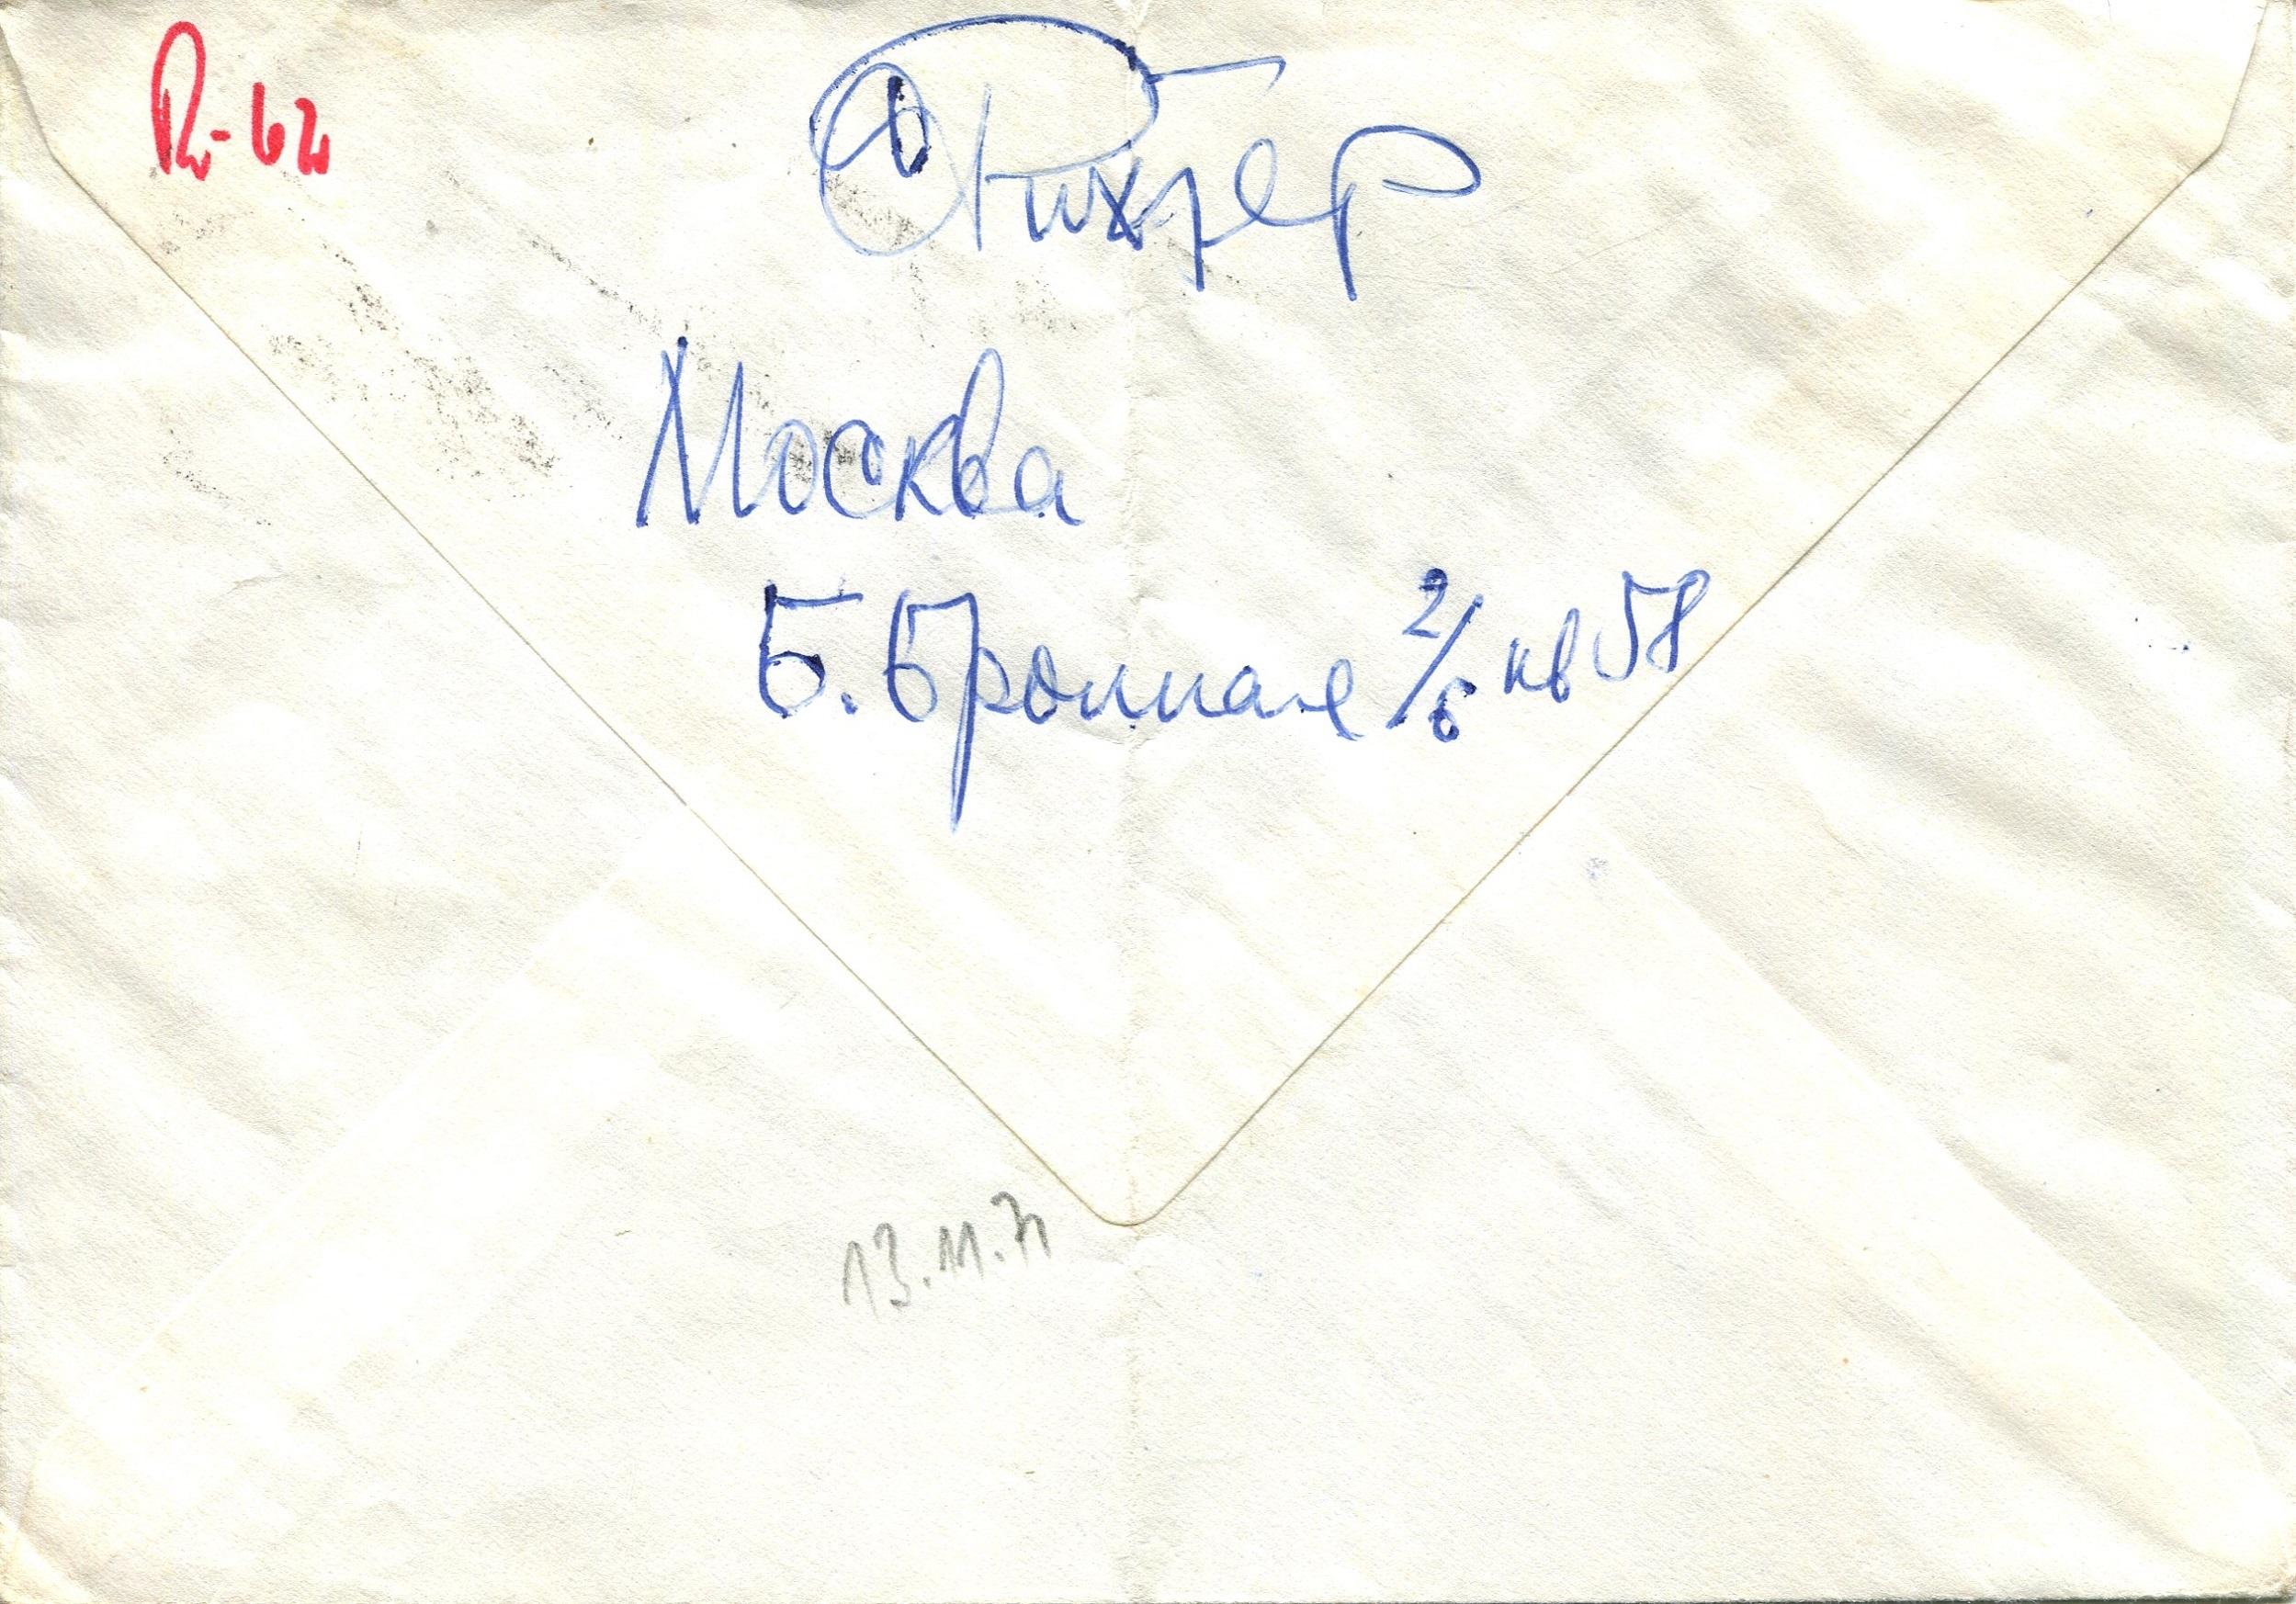 Ri-62
С Рихтер
Москва
Б. Бронная 2/6 кв 58
13.11.71